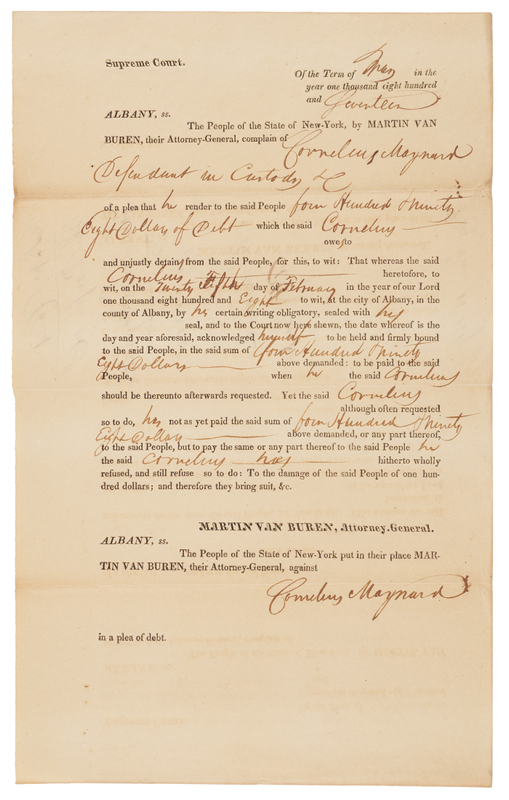 Supreme Court.
Of the Term of May in the
year one thousand eight hundred
and Seventeen
ALBANY, ss.
The People of the State of New-York, by MARTIN VAN
BUREN, their Attorney-General, complain of
Cornelius Maynard
Defendant in Custody &c
of a plea that he render to the said People four Hundred & Ninety
Eight Dollars of Debt which the said Cornelius
owes to
and unjustly detains from the said People, for this, to wit: That whereas the said
Cornelius heretofore, to
wit, on the Twenty Fifth day of February in the year of our Lord
one thousand eight hundred and Eight to wit, at the city of Albany, in the
county of Albany, by his certain writing obligatory, sealed with his
seal, and to the Court now here shewn, the date whereof is the
day and year aforesaid, acknowledged himself to be held and firmly bound
to the said People, in the said sum of four Hundred & Ninety
Eight Dollars above demanded: to be paid to the said
People, when he the said Cornelius
should be thereunto afterwards requested. Yet the said Cornelius
although often requested
so to do, has not as yet paid the said sum of four Hundred & Ninety
Eight Dollars above demanded, or any part thereof,
to the said People, but to pay the same or any part thereof to the said People he
the said Cornelius has hitherto wholly
refused, and still refuse so to do: To the damage of the said People of one hun-
dred dollars; and therefore they bring suit, &c.
MARTIN VAN BUREN, Attorney-General.
ALBANY, ss.
The People of the State of New-York put in their place MAR-
TIN VAN BUREN, their Attorney-General, against
Cornelius Maynard
in a plea of debt.